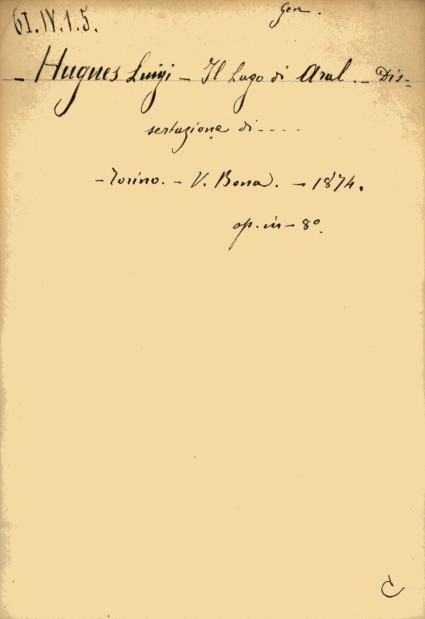 61.IV.1.5.
Gen.
- Hugues Luigi - Il Lago di Aral. - Dis-
sertazione di ----
- Torino. - V. Bona. - 1874.
op. in - 8º.
C